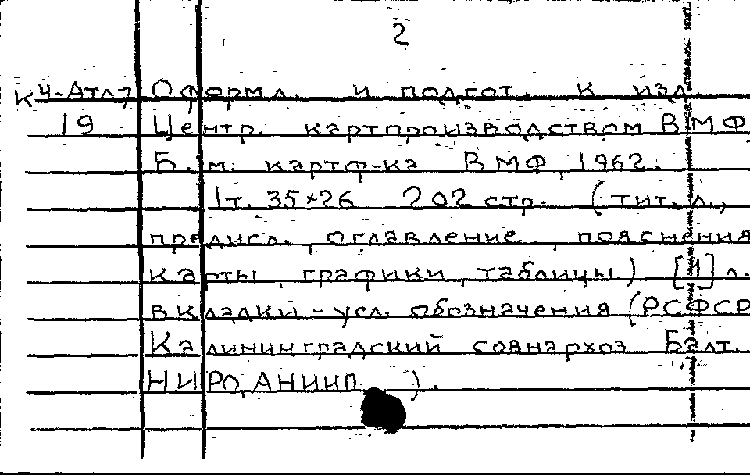 2
К4-Атл7 Оформл. и подгот. к изд.
19 Центр. картпроизводством ВМФ
Б.м. картф-ка ВМФ, 1962.
1т. 35×26 202 стр. (тит. л.,
предисл., оглавление, пояснения
карты, графики, таблицы) [1] л.
вкладки - усл. обозначения (РСФСР
Калининградский совнархоз Балт.
НИРО, АНИИП ).